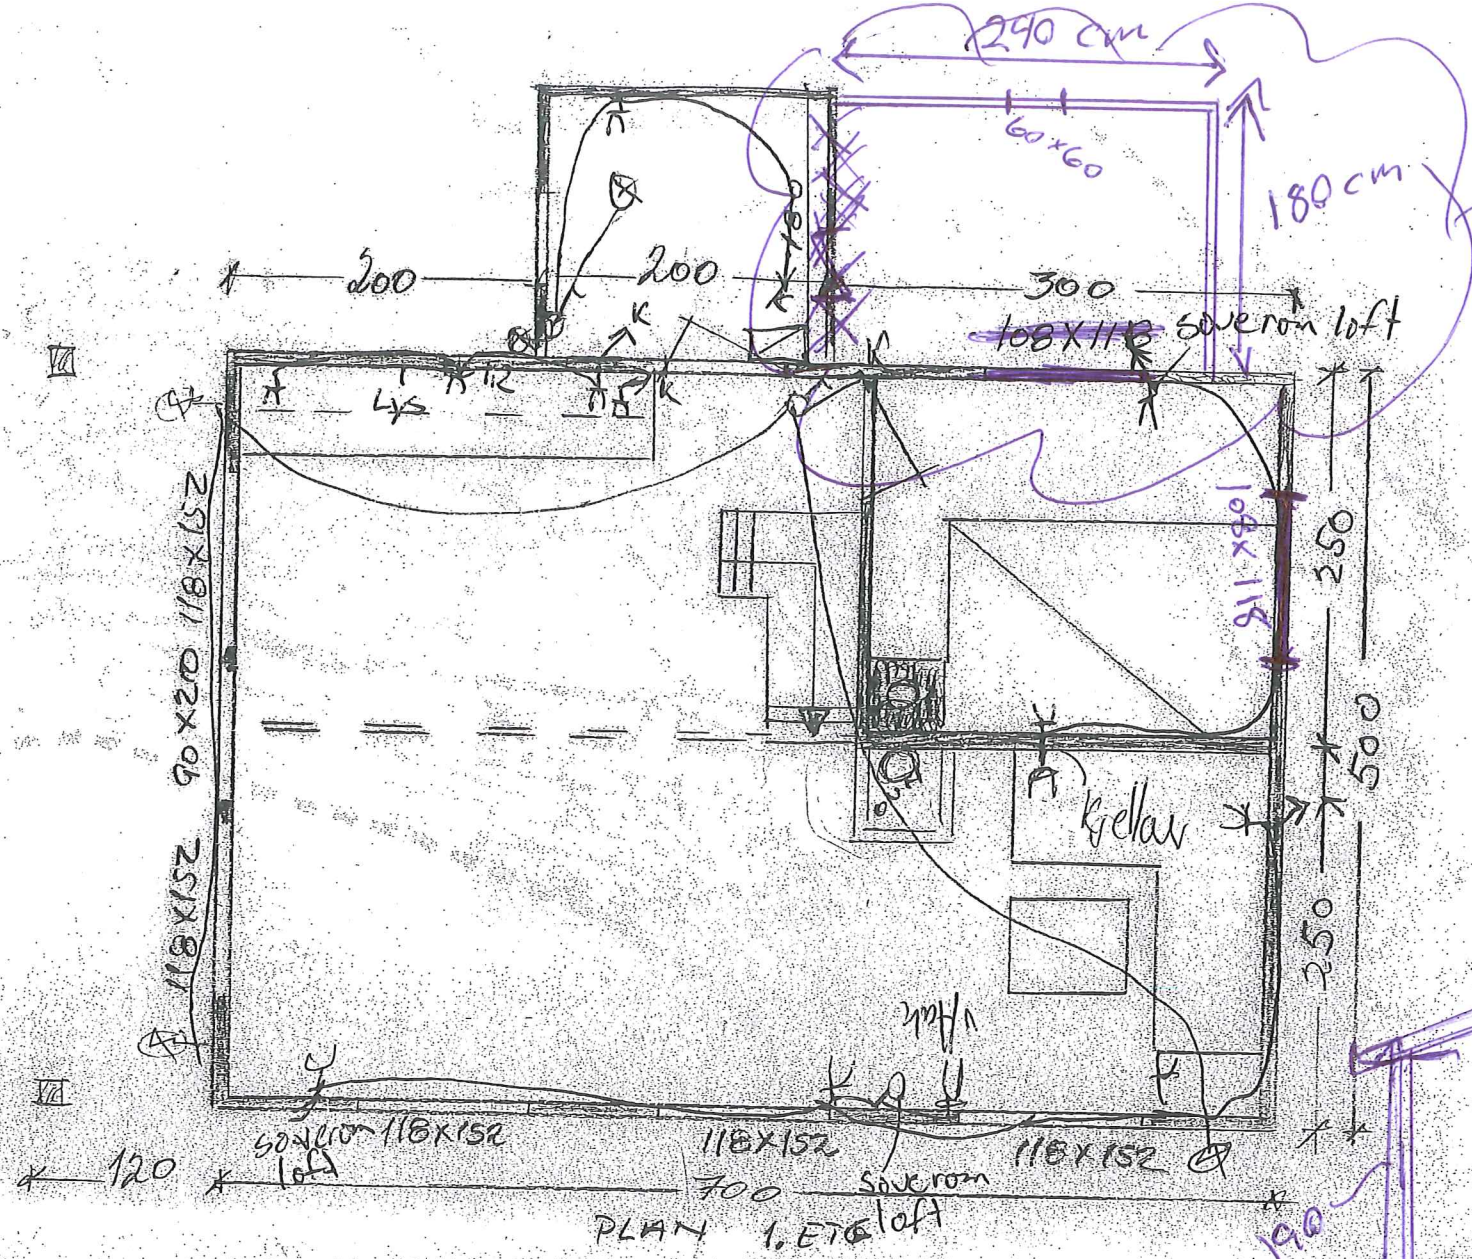 240 cm
60×60
180 cm
200
200
300
108X118
soverom loft
K
K
K
K
K
Lys
118X152
90X210
118X152
108X118
250
500
250
Kjellar
soverom
loft
118X152
118X152
118X152
soverom
loft
120
700
PLAN 1. ETG
190